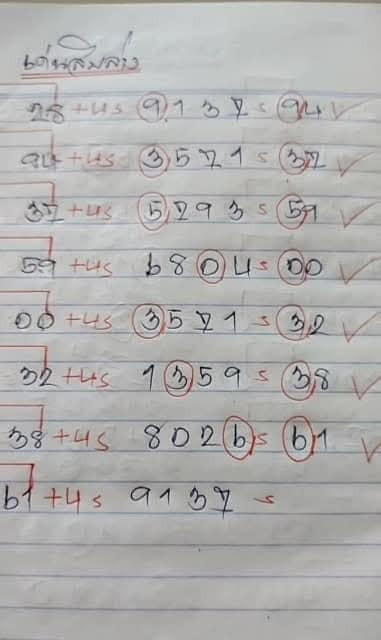 เด่นสิบล่าง
28 +4= 9137 = 94 ✓
94 +4= 3571 = 37 ✓
37 +4= 5793 = 59 ✓
59 +4= 6804 = 00 ✓
00 +4= 3571 = 32 ✓
32 +4= 1359 = 38 ✓
38 +4= 8026 = 61 ✓
61 +4= 9137 =